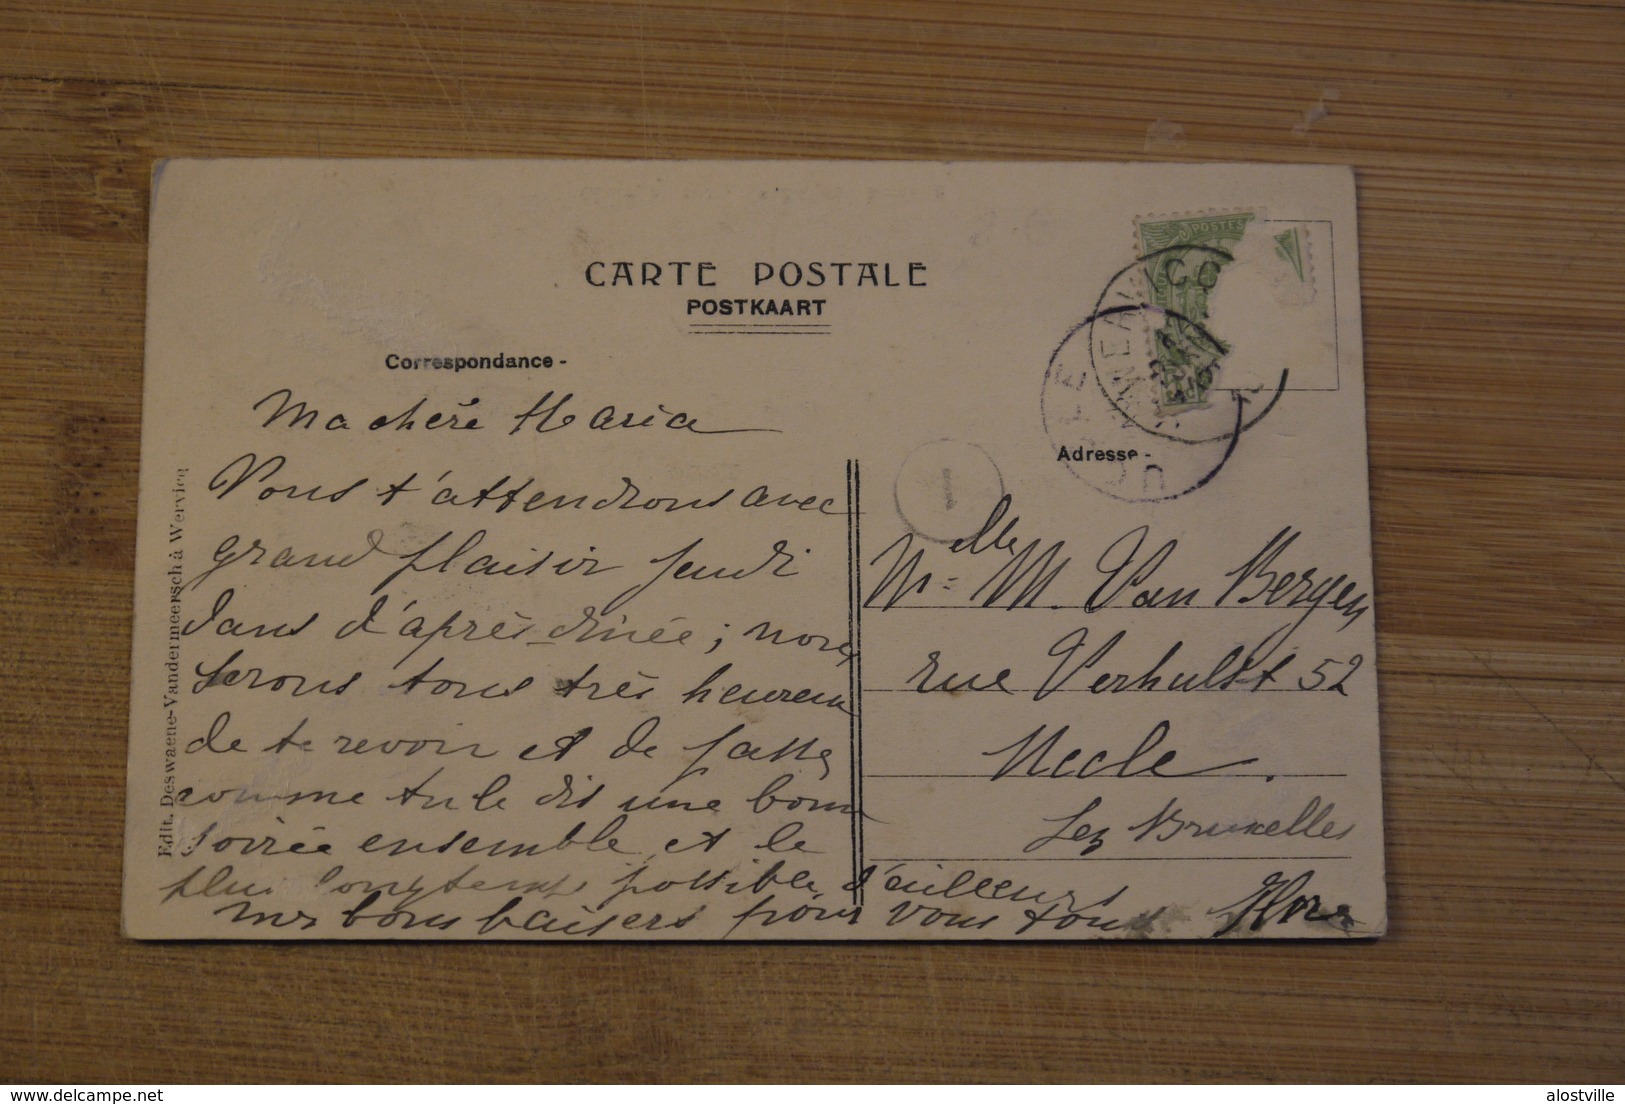 CARTE POSTALE
POSTKAART
Correspondance -
Ma chère Maria
Vous t'attendrons avec
grand plaisir jeudi
dans d'après-dinée; nous
serons tous très heureux
de te revoir et de passer
comme tu le dis une bonne
soirée ensemble et le
plus longtemps possible d'ailleurs
mes bons baisers pour vous tous Flore
Edit. Deswaene-Vandermeersch à Wervicq
POSTES
Adresse -
Melle M. Van Bergen
rue Verhulst 52
Uccle.
Lez Bruxelles
UCCLE
delcampe.net
alostville